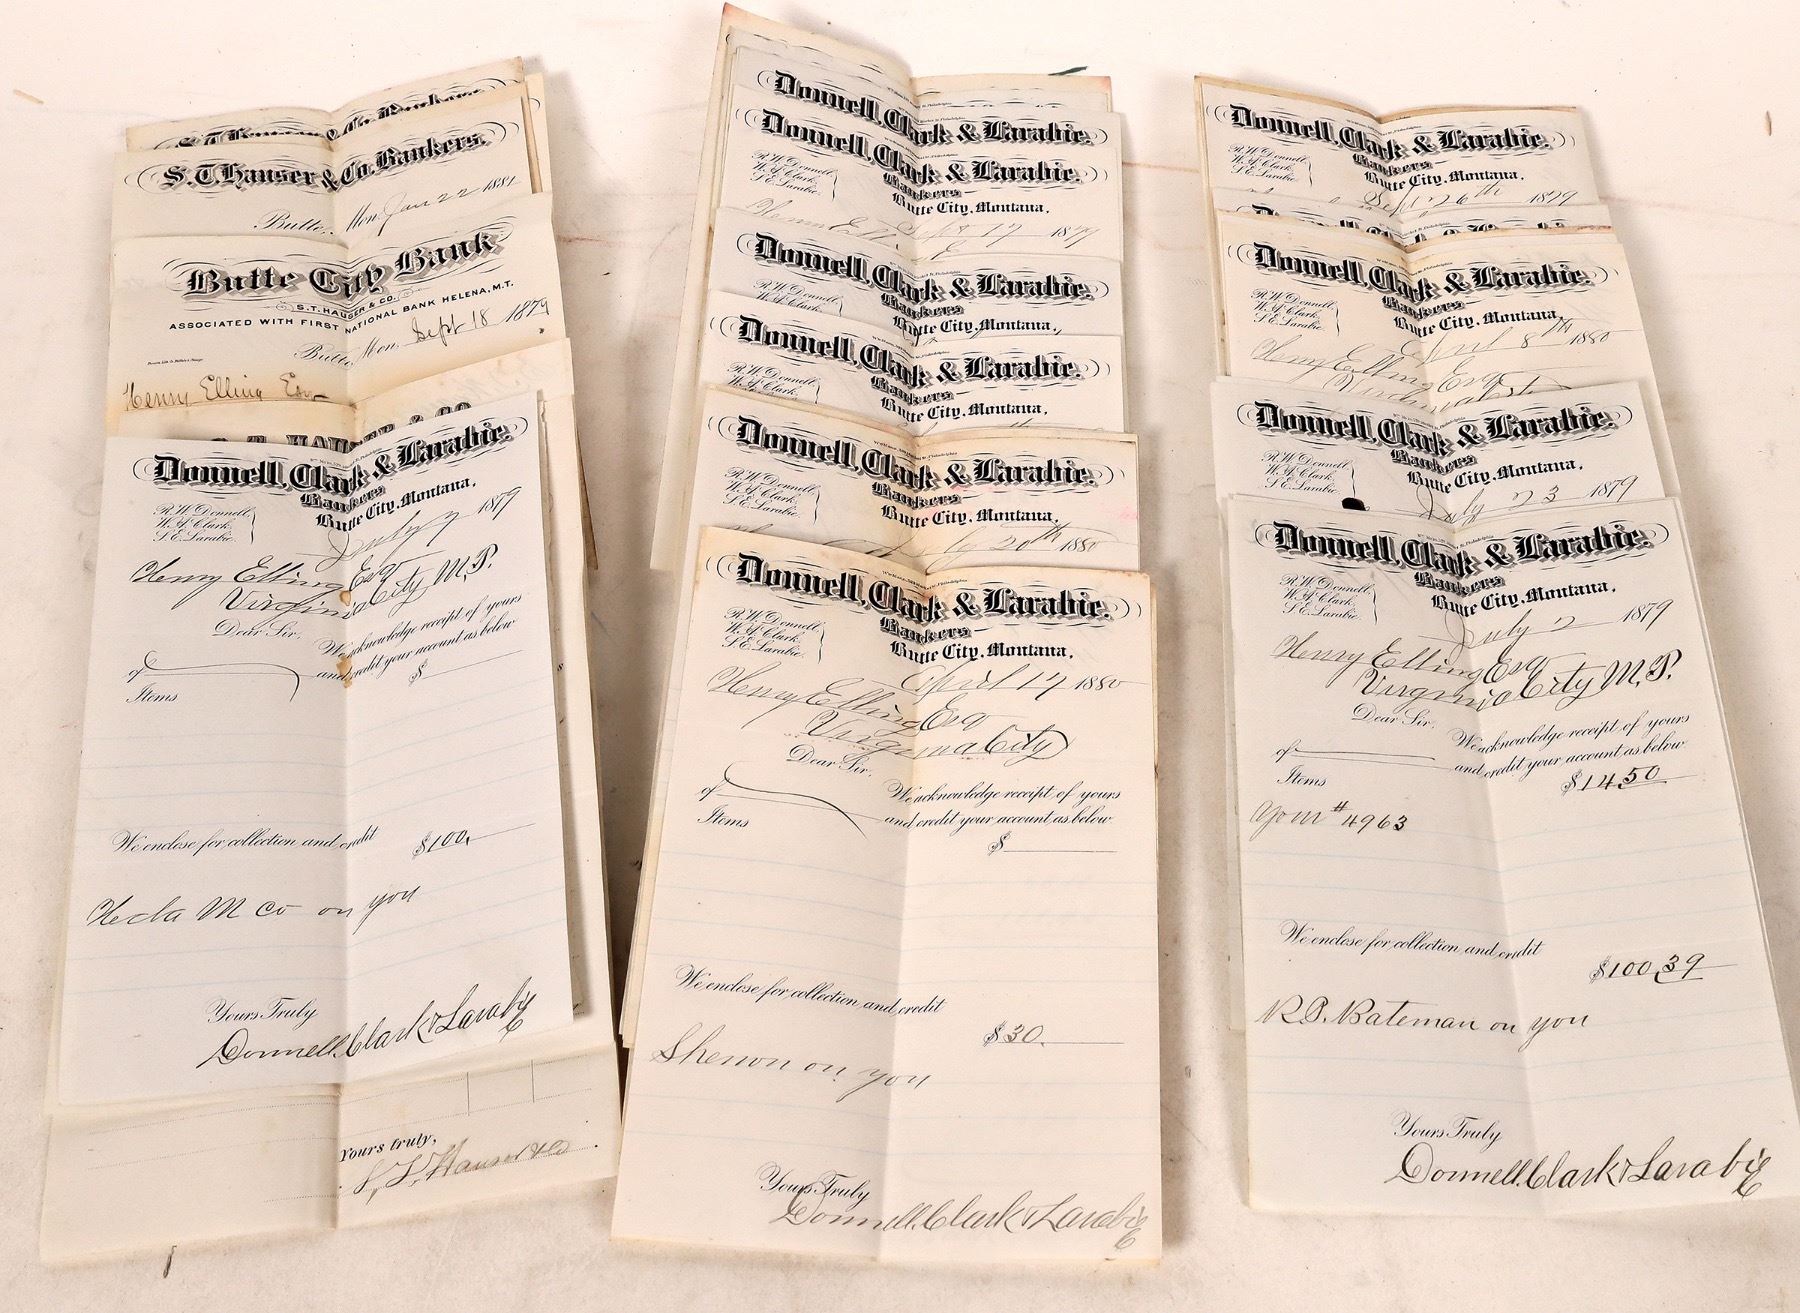 S.T. Hauser & Co. Bankers.
S.T. Hauser & Co. Bankers.
Butte, Mon. Jan 22 1881
Butte City Bank
S.T. HAUSER & CO.
ASSOCIATED WITH FIRST NATIONAL BANK HELENA, M.T.
Butte, Mon. Sept 18 1879
Henry Elling Esq
HAUSER & CO
Donnell, Clark & Larabie.
Bankers
Butte City, Montana,
R.W. Donnell,
W.A. Clark,
S.E. Larabie.
July 7 1879
Henry Elling Esq
Virginia City M.T.
Dear Sir,
We acknowledge receipt of yours
of and credit your account as below
$
Items
We enclose for collection and credit $100.
Hecla M Co on you
Yours Truly
Donnell, Clark & Larabie
Yours truly,
S. T. Hauser & Co
Donnell, Clark & Larabie.
Donnell, Clark & Larabie.
Bankers
Butte City, Montana,
R.W. Donnell,
W.A. Clark,
S.E. Larabie.
Sept 17 1879
Donnell, Clark & Larabie.
Bankers
Butte City, Montana,
R.W. Donnell,
W.A. Clark,
Donnell, Clark & Larabie.
Bankers
Butte City, Montana,
R.W. Donnell,
W.A. Clark,
Donnell, Clark & Larabie.
Bankers
Butte City, Montana,
R.W. Donnell,
W.A. Clark,
S.E. Larabie.
20th 1880
Donnell, Clark & Larabie.
Bankers
Butte City, Montana,
R.W. Donnell,
W.A. Clark,
S.E. Larabie.
April 17 1880
Henry Elling Esq
Virginia City
Dear Sir,
We acknowledge receipt of yours
of and credit your account as below
Items
$
We enclose for collection and credit
$30.
Shenon on you
Yours Truly
Donnell, Clark & Larabie
Donnell, Clark & Larabie.
Bankers
Butte City, Montana,
R.W. Donnell,
W.A. Clark,
S.E. Larabie.
Sept 26th 1879
Donnell, Clark & Larabie.
Bankers
Butte City, Montana,
R.W. Donnell,
W.A. Clark,
S.E. Larabie.
April 8th 1880
Henry Elling Esq
Donnell, Clark & Larabie.
Bankers
Butte City, Montana,
R.W. Donnell,
W.A. Clark,
S.E. Larabie.
July 23 1879
Donnell, Clark & Larabie.
Bankers
Butte City, Montana,
R.W. Donnell,
W.A. Clark,
S.E. Larabie.
July 2 1879
Henry Elling Esq
Virginia City M.T.
Dear Sir,
We acknowledge receipt of yours
of and credit your account as below
Items $14.50
Your # 4963
We enclose for collection and credit
$100.39
R.P. Bateman on you
Yours Truly
Donnell, Clark & Larabie